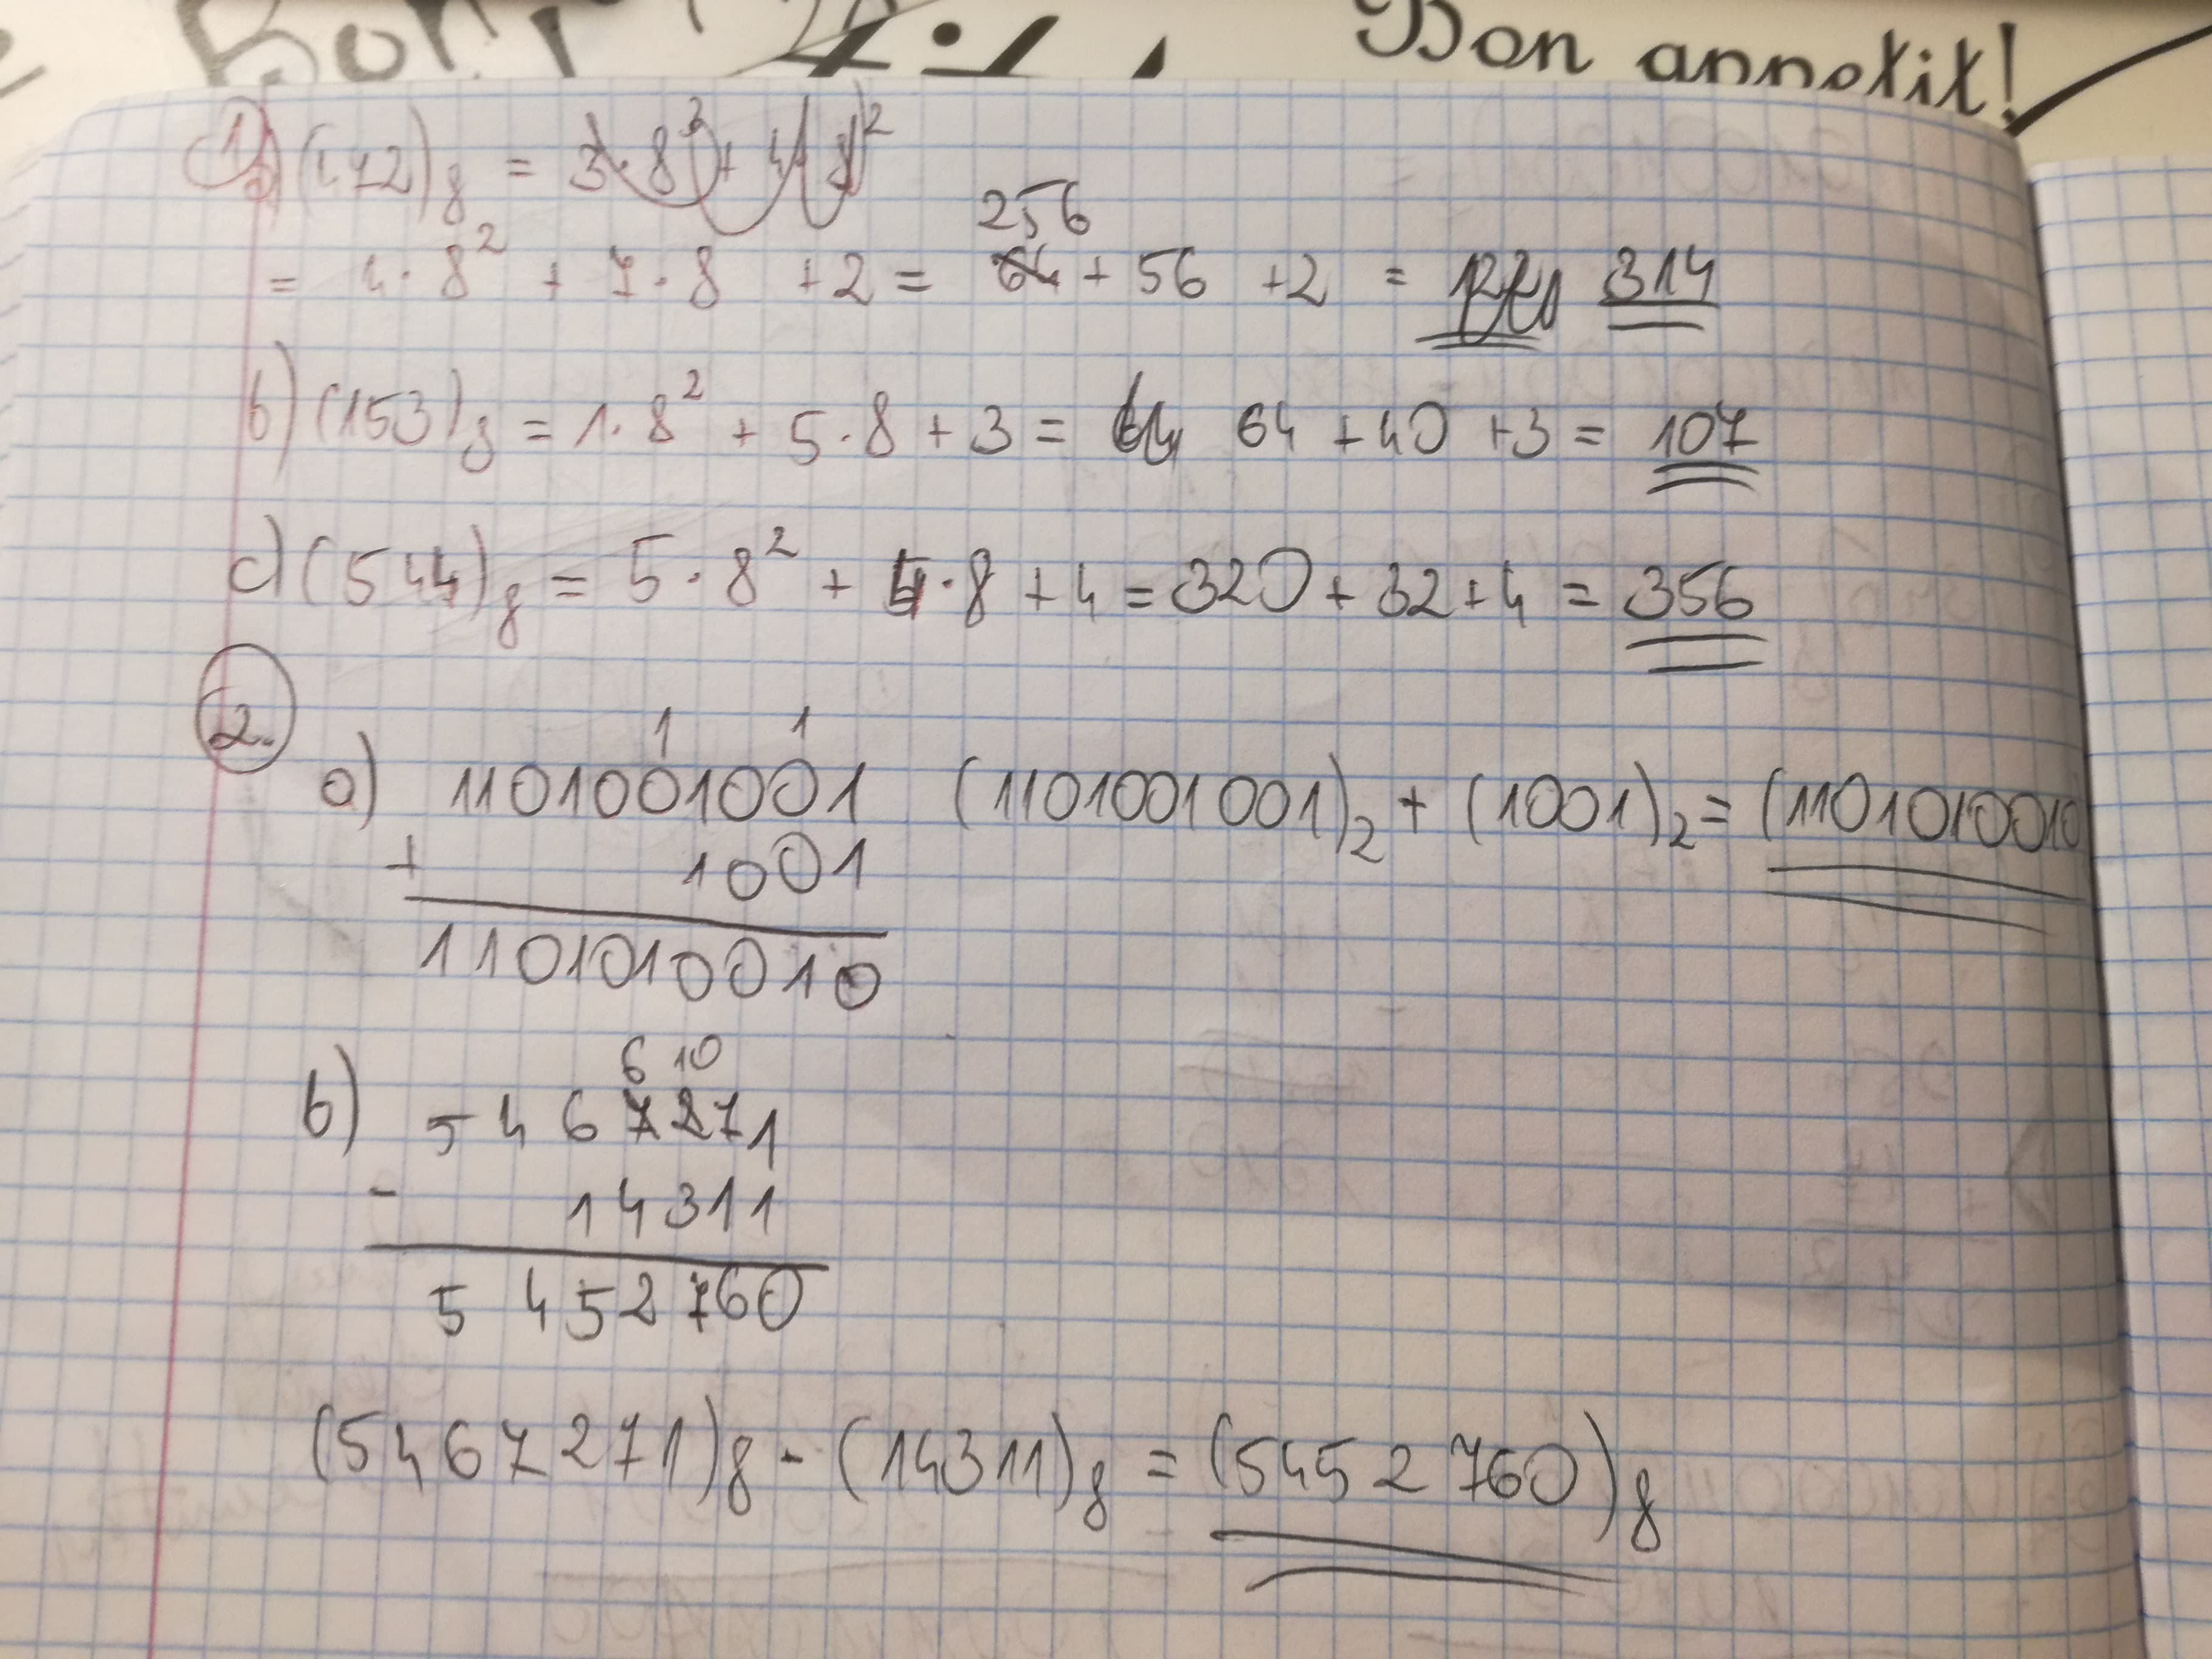 Bon appetit!
1. a) (472)8 = 3·8³ + 4·8²
256
= 4·8² + 7·8 + 2 = 64 + 56 + 2 = 122 314
b) (153)8 = 1·8² + 5·8 + 3 = 64 64 + 40 + 3 = 107
c) (544)8 = 5·8² + 4·8 + 4 = 320 + 32 + 4 = 356
2.
1 1
a) 1101001001 (1101001001)2 + (1001)2 = (1101010010
+ 1001
1101010010
6 10
b) 5467271
- 14311
5452760
(5467271)8 - (14311)8 = (5452760)8